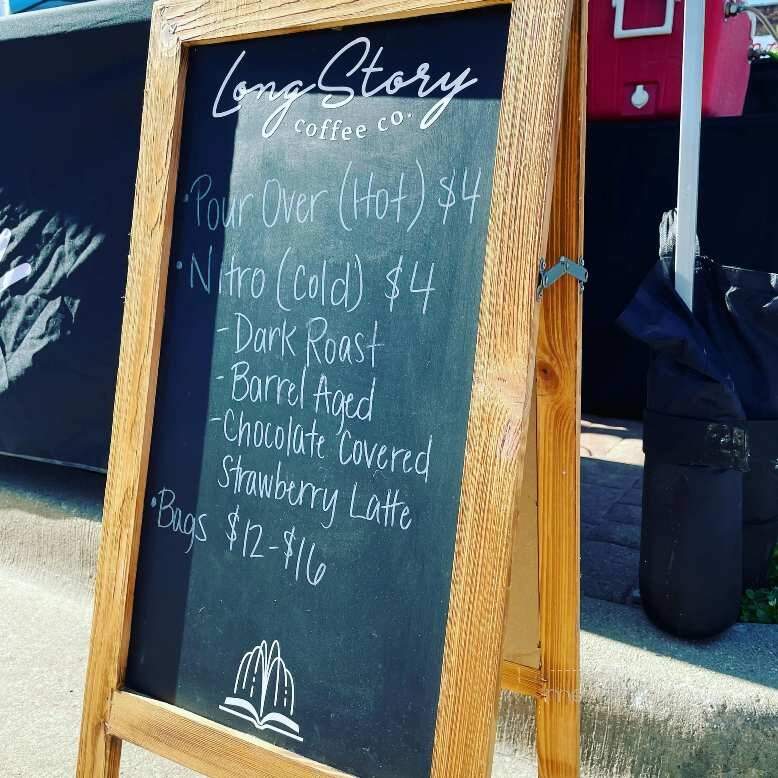 Long Story
coffee co.
• Pour Over (Hot) $4
• Nitro (Cold) $4
- Dark Roast
- Barrel Aged
- Chocolate Covered
Strawberry Latte
• Bags $12-$16